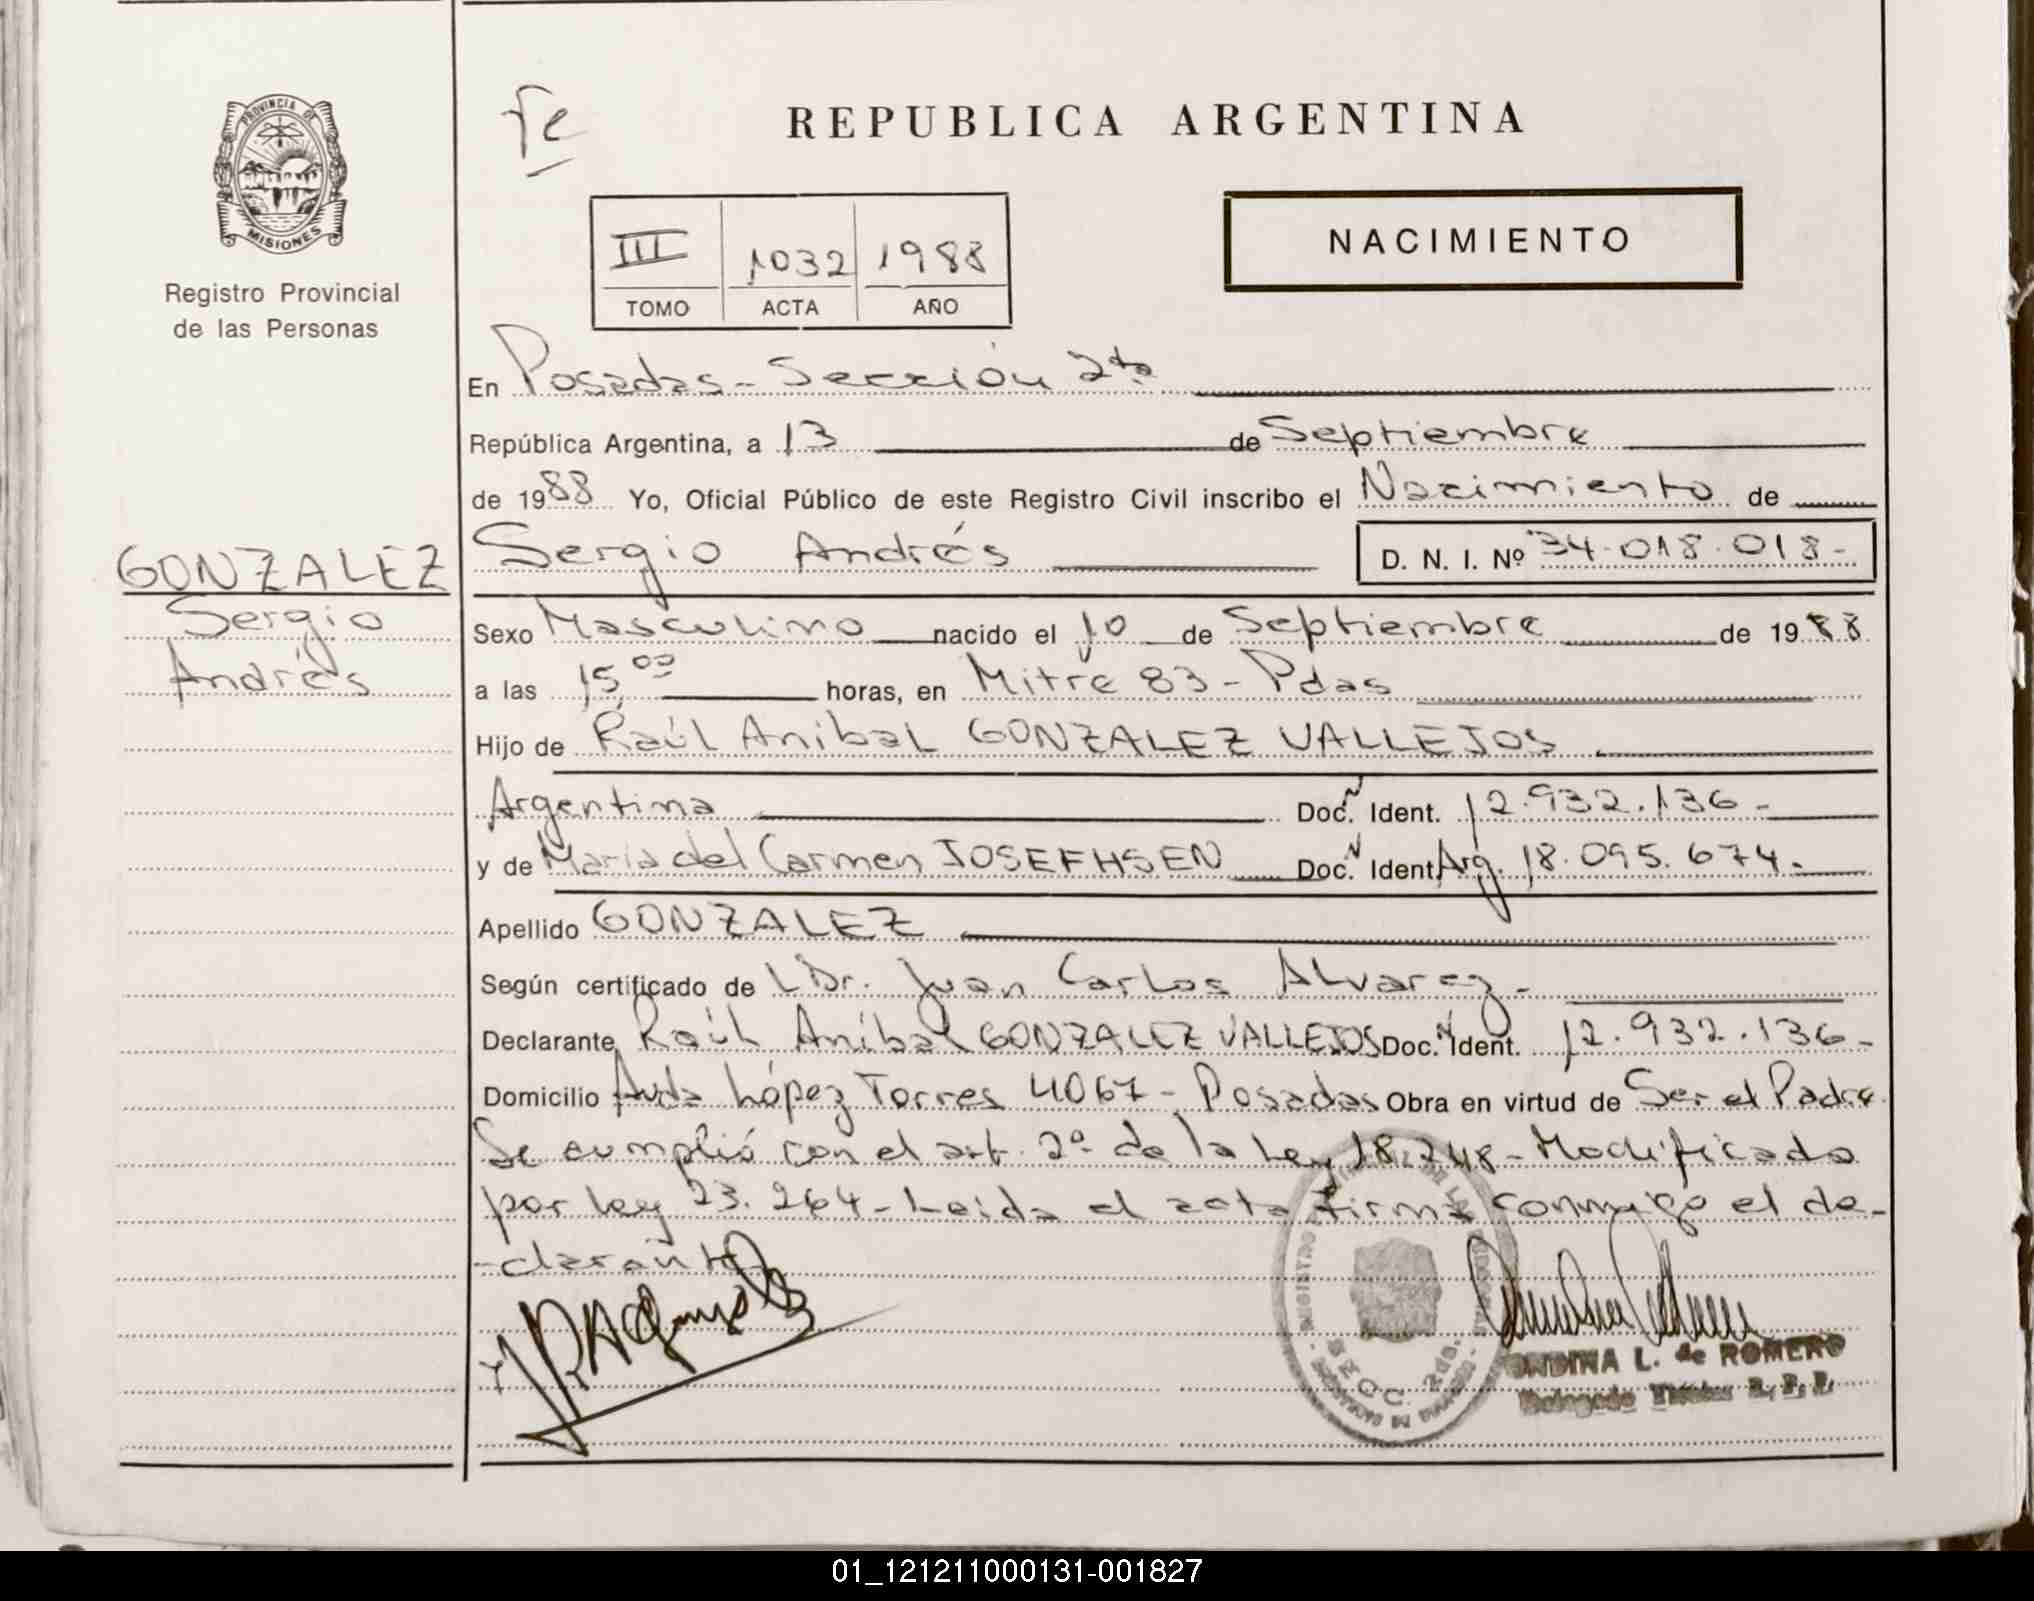 PROVINCIA DE
MISIONES
Registro Provincial
de las Personas
GONZALEZ
Sergio
Andrés
Fe
REPUBLICA ARGENTINA
III 1032 1988
TOMO ACTA AÑO
NACIMIENTO
En Posadas - Sección 2da
República Argentina, a 13 de Septiembre
de 1988 Yo, Oficial Público de este Registro Civil inscribo el Nacimiento de
Sergio Andrés D. N. I. Nº 34.018.018-
Sexo Masculino nacido el 10 de Septiembre de 1988
a las 15 00 horas, en Mitre 83 - Pdas
Hijo de Raúl Anibal GONZALEZ VALLEJOS
Argentina Doc. N Ident. 12.932.136-
y de María del Carmen JOSEFHSEN Doc. N Ident. Arg. 18.095.674-
Apellido GONZALEZ
Según certificado de Dr. Juan Carlos Alvarez-
Declarante Raúl Aníbal GONZALEZ VALLEJOS Doc. N Ident. 12.932.136-
Domicilio Avda López Torres 4067 - Posadas Obra en virtud de Ser el Padre
Se cumplió con el art. 2º de la Ley 18.248 - Modificada
por Ley 23.264 - Leida el acta firma conmigo el de-
-clarante
SECC. 2da.
ONDINA L. de ROMERO
01_121211000131-001827